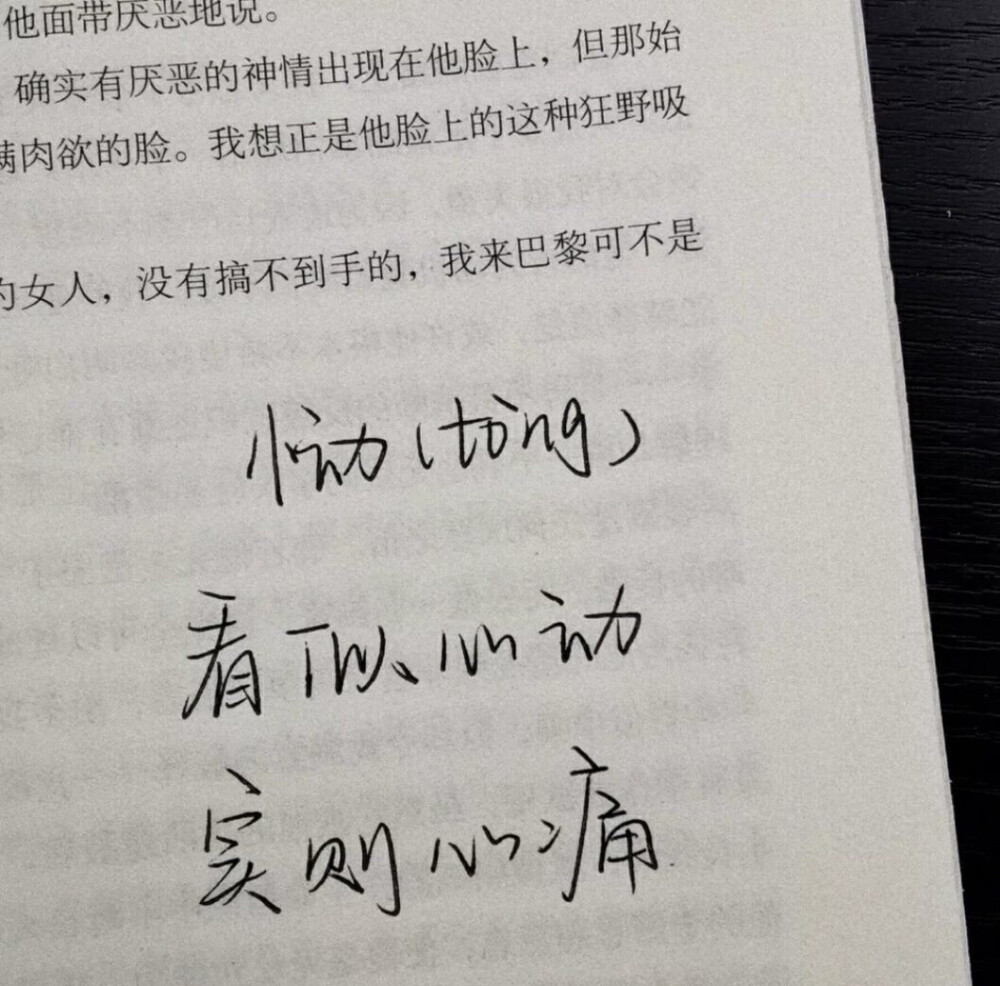 他面带厌恶地说。
确实有厌恶的神情出现在他脸上，但那始
满肉欲的脸。我想正是他脸上的这种狂野吸
的女人，没有搞不到手的，我来巴黎可不是
恸（tòng）
看似心动
实则心痛